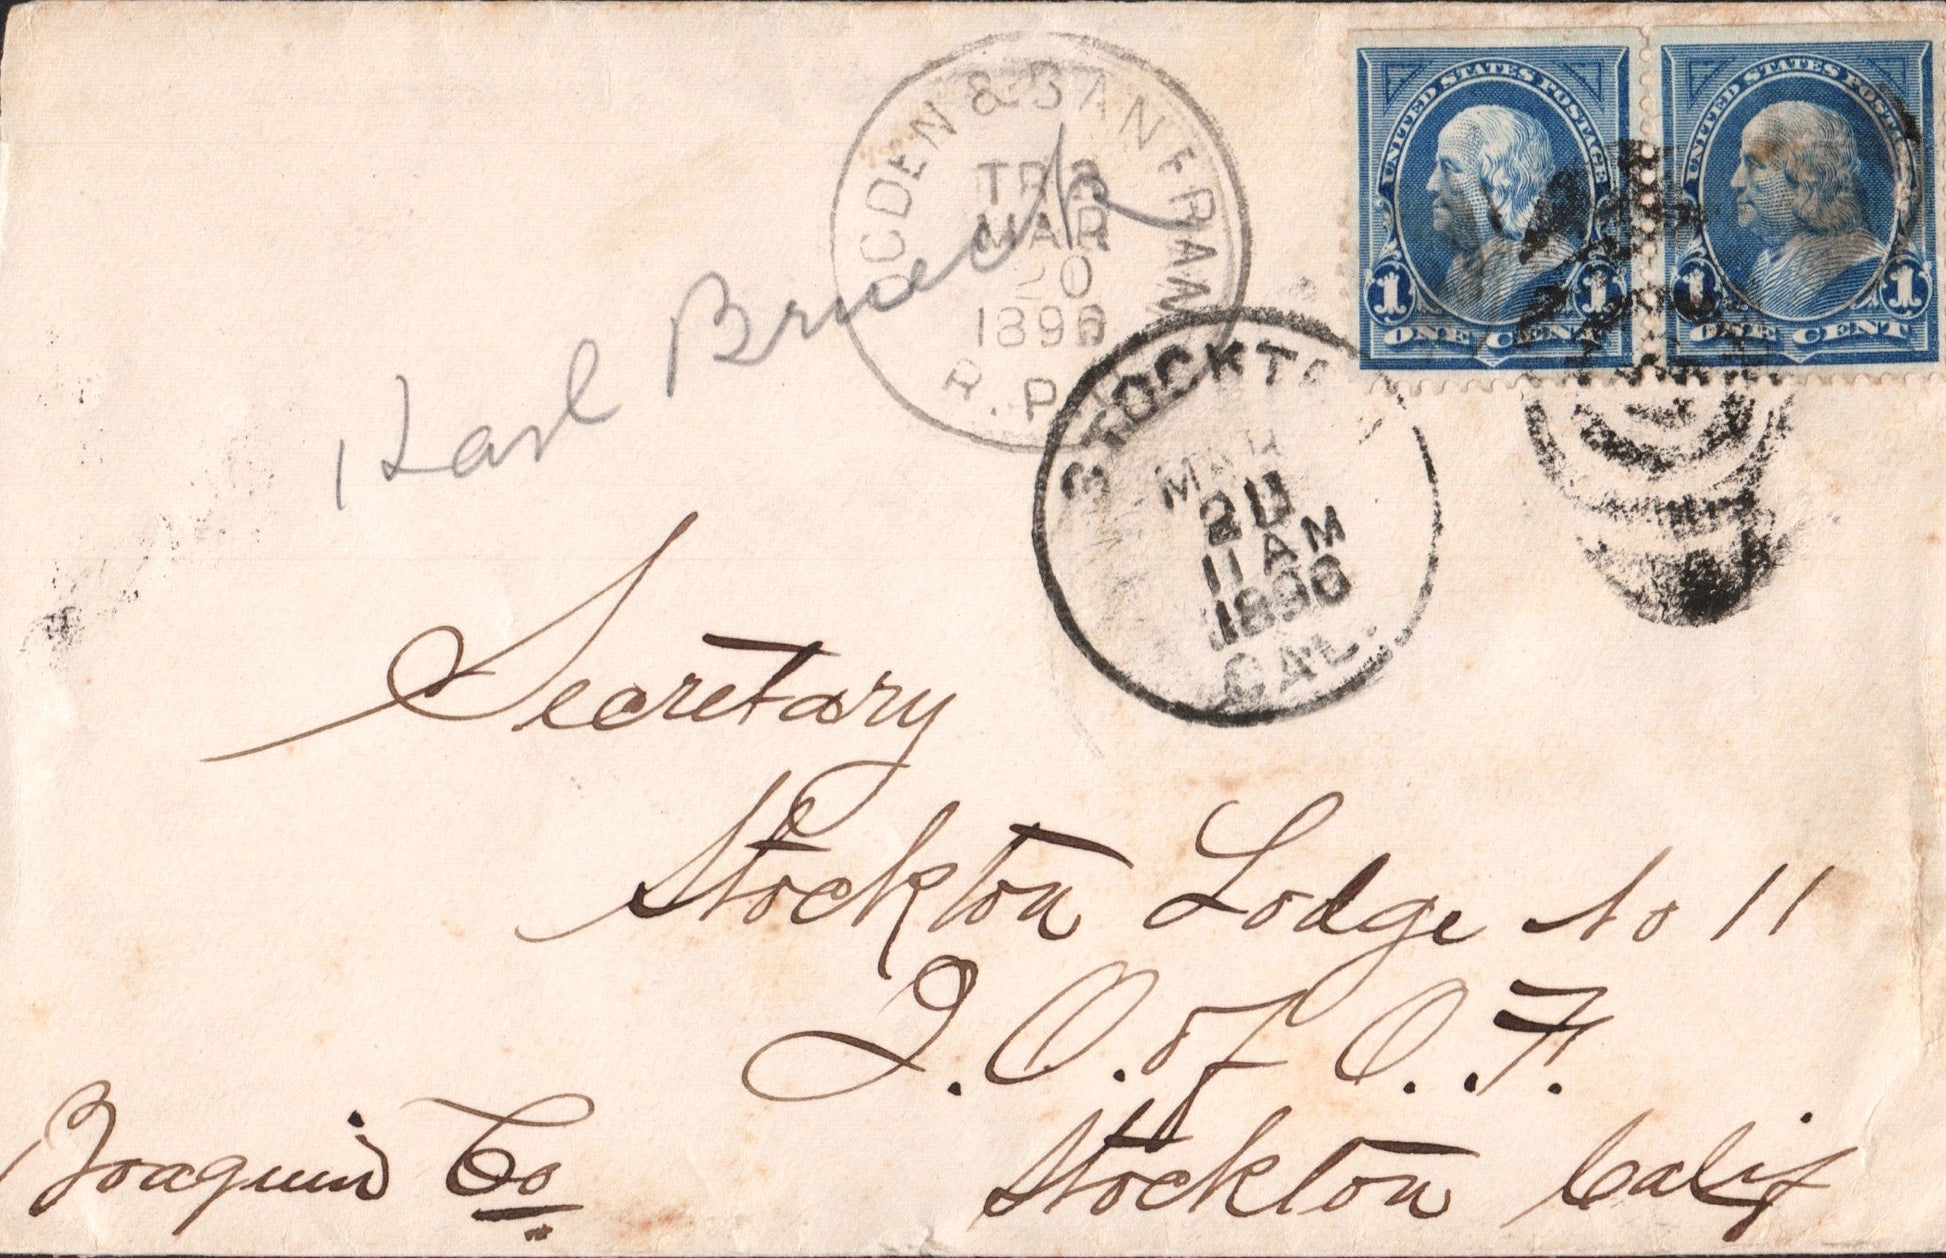 UNITED STATES POSTAGE
1 1
ONE CENT
UNITED STATES POSTAGE
1 1
ONE CENT
OGDEN & SAN FRAN
TR 2
MAR
20
1896
R.P.O.
STOCKTON
MAR
11 AM
1896
CAL.
Karl
Secretary
Stockton Lodge No 11
I.O. of O.F.
Stockton Calif
Joaquin Co